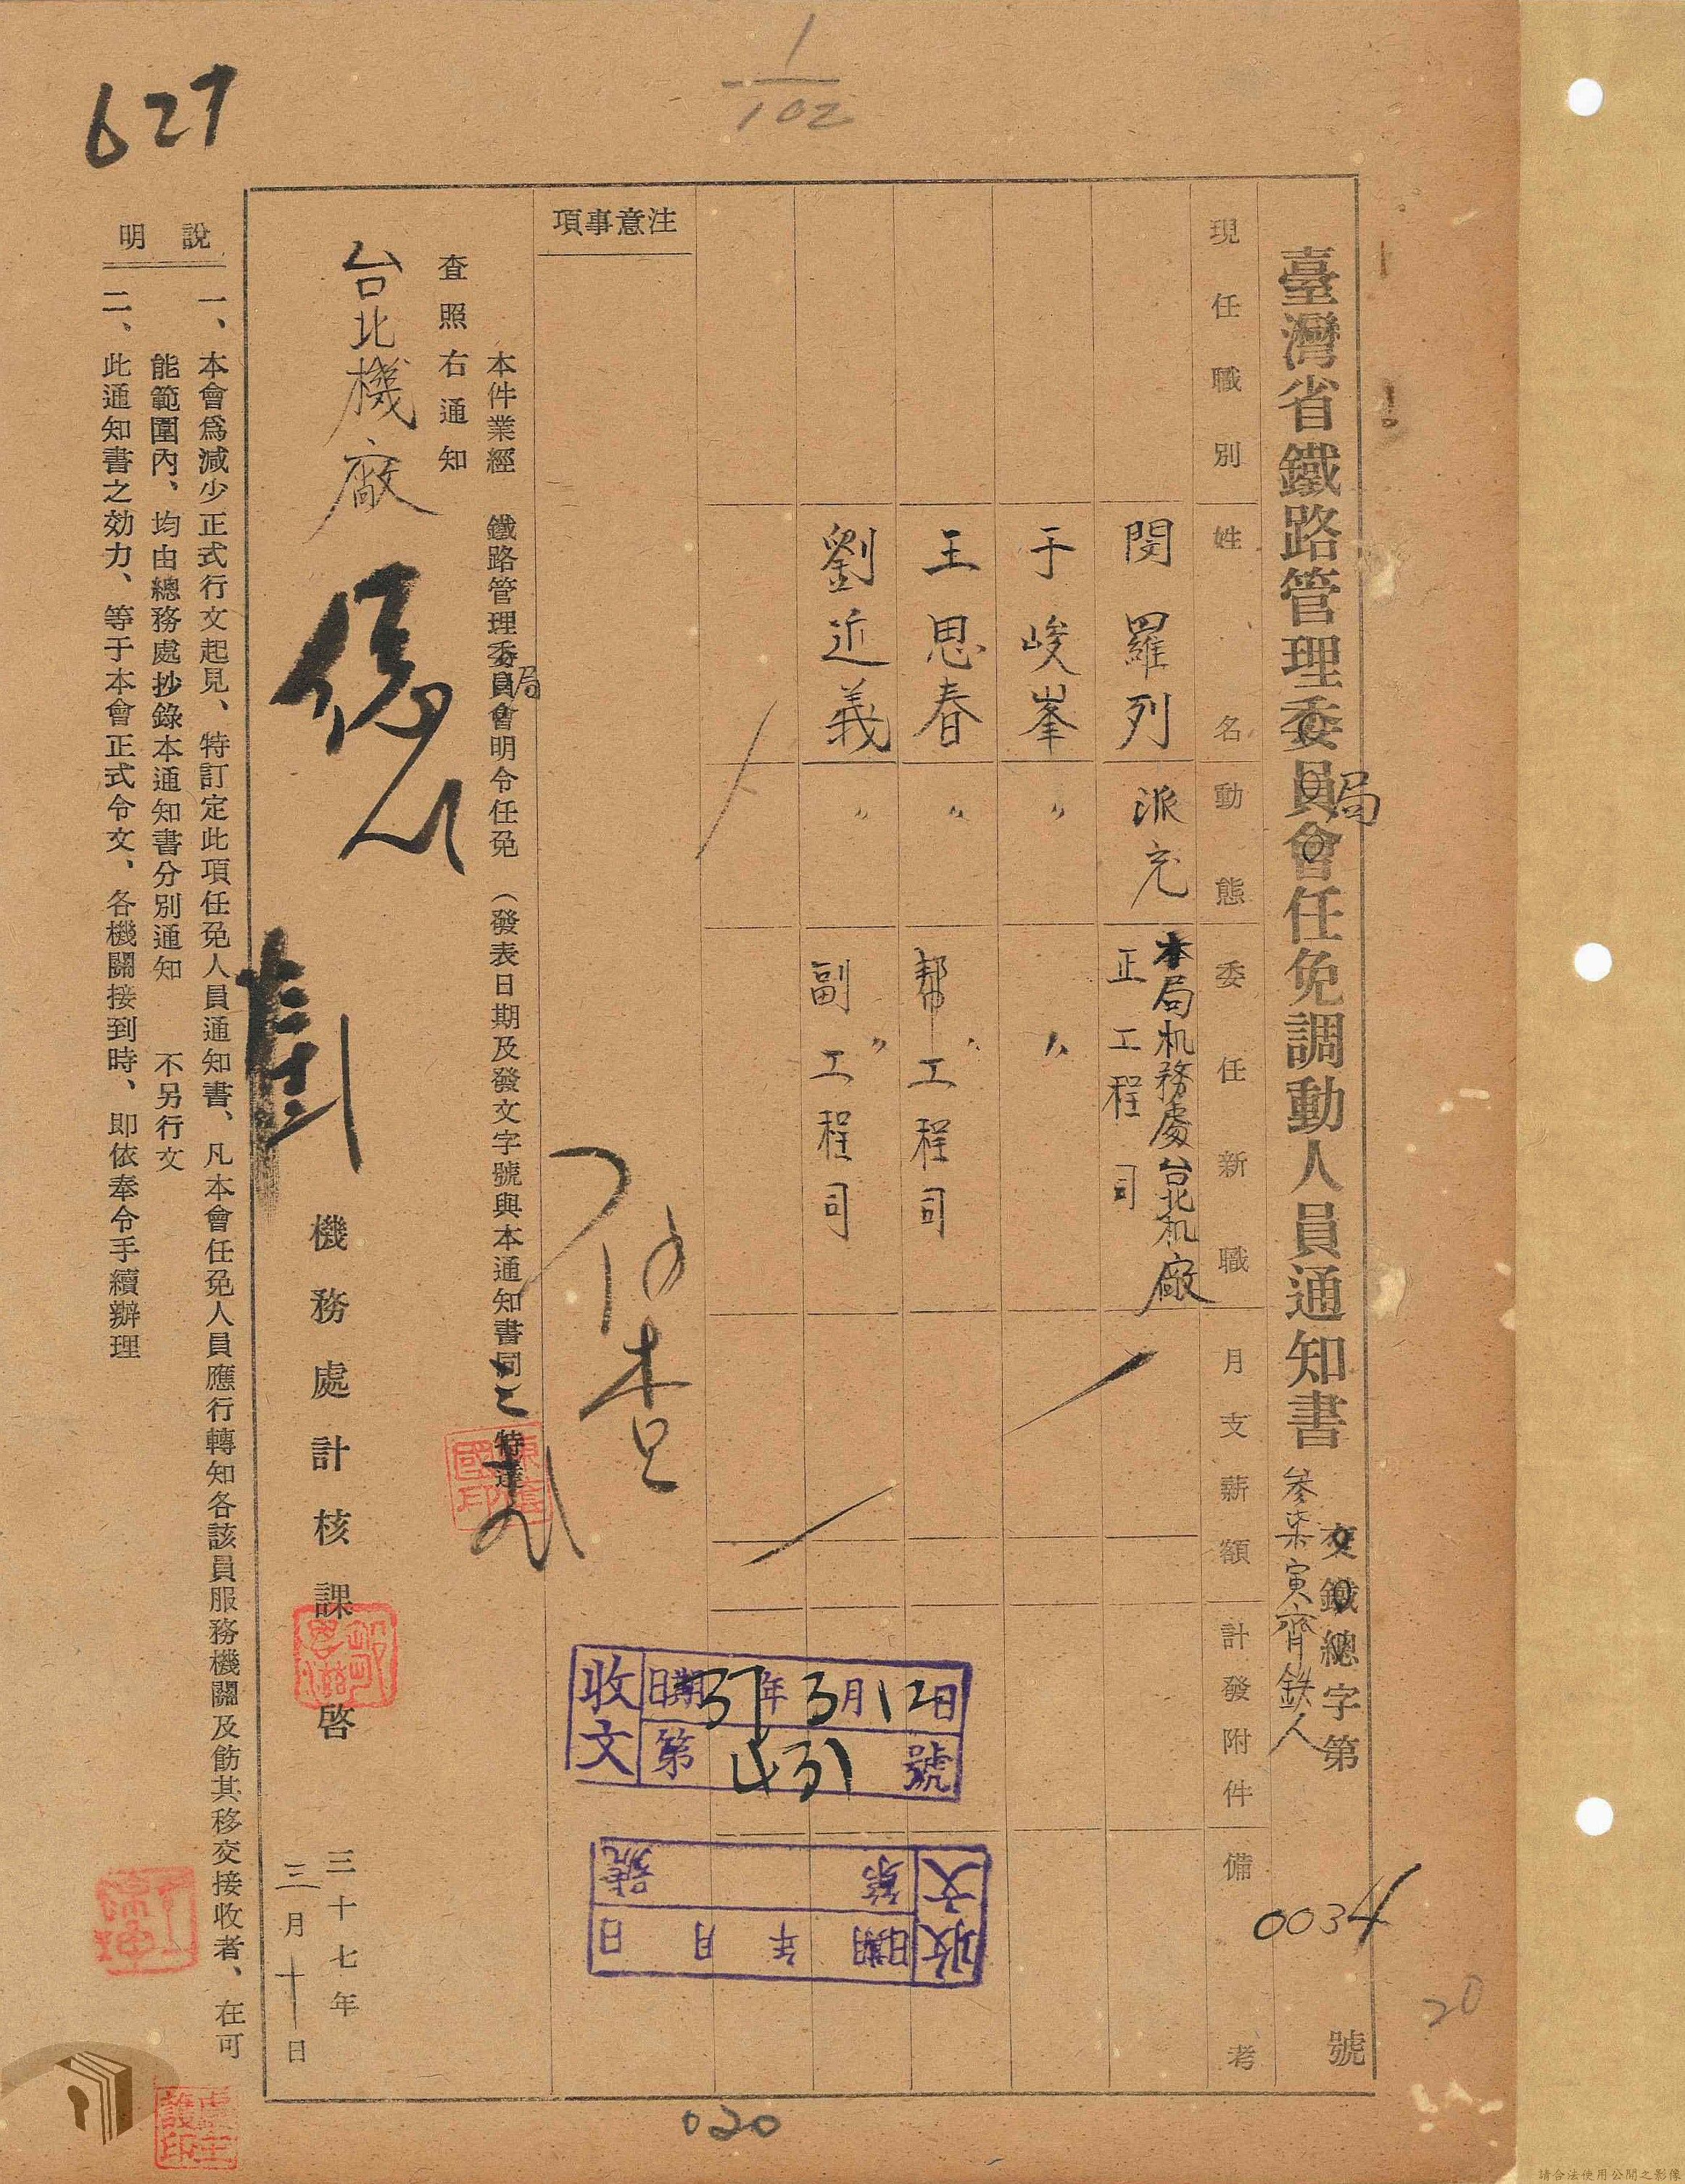 臺灣省鐵路管理委員會任免調動人員通知書
局
交鐵總字第
號
參柒寅齊鉄人
0034
現任職別
姓名
動態
委任新職
月支薪額
計發附件
備考
閔羅列
派充
本局机務處台北机廠
正工程司
于峻峯
〃
〃
王思春
〃
〃
幫工程司
劉近義
〃
〃
副工程司
注意事項
本件業經 鐵路管理委員會明令任免(發表日期及發文字號與本通知書同)特達
局
查照右通知
台北機廠
機務處計核課啓
三十七年
三月十一日
說明
一、本會爲減少正式行文起見、特訂定此項任免人員通知書、凡本會任免人員應行轉知各該員服務機關及飭其移交接收者、在可
能範圍內、均由總務處抄錄本通知書分別通知 不另行文
二、此通知書之効力、等于本會正式令文、各機關接到時、即依奉令手續辦理
收文
日期37年3月12日
第431號
收文
日期 年 月 日
第 號
627
1/102
20
020
請合法使用公開之影像